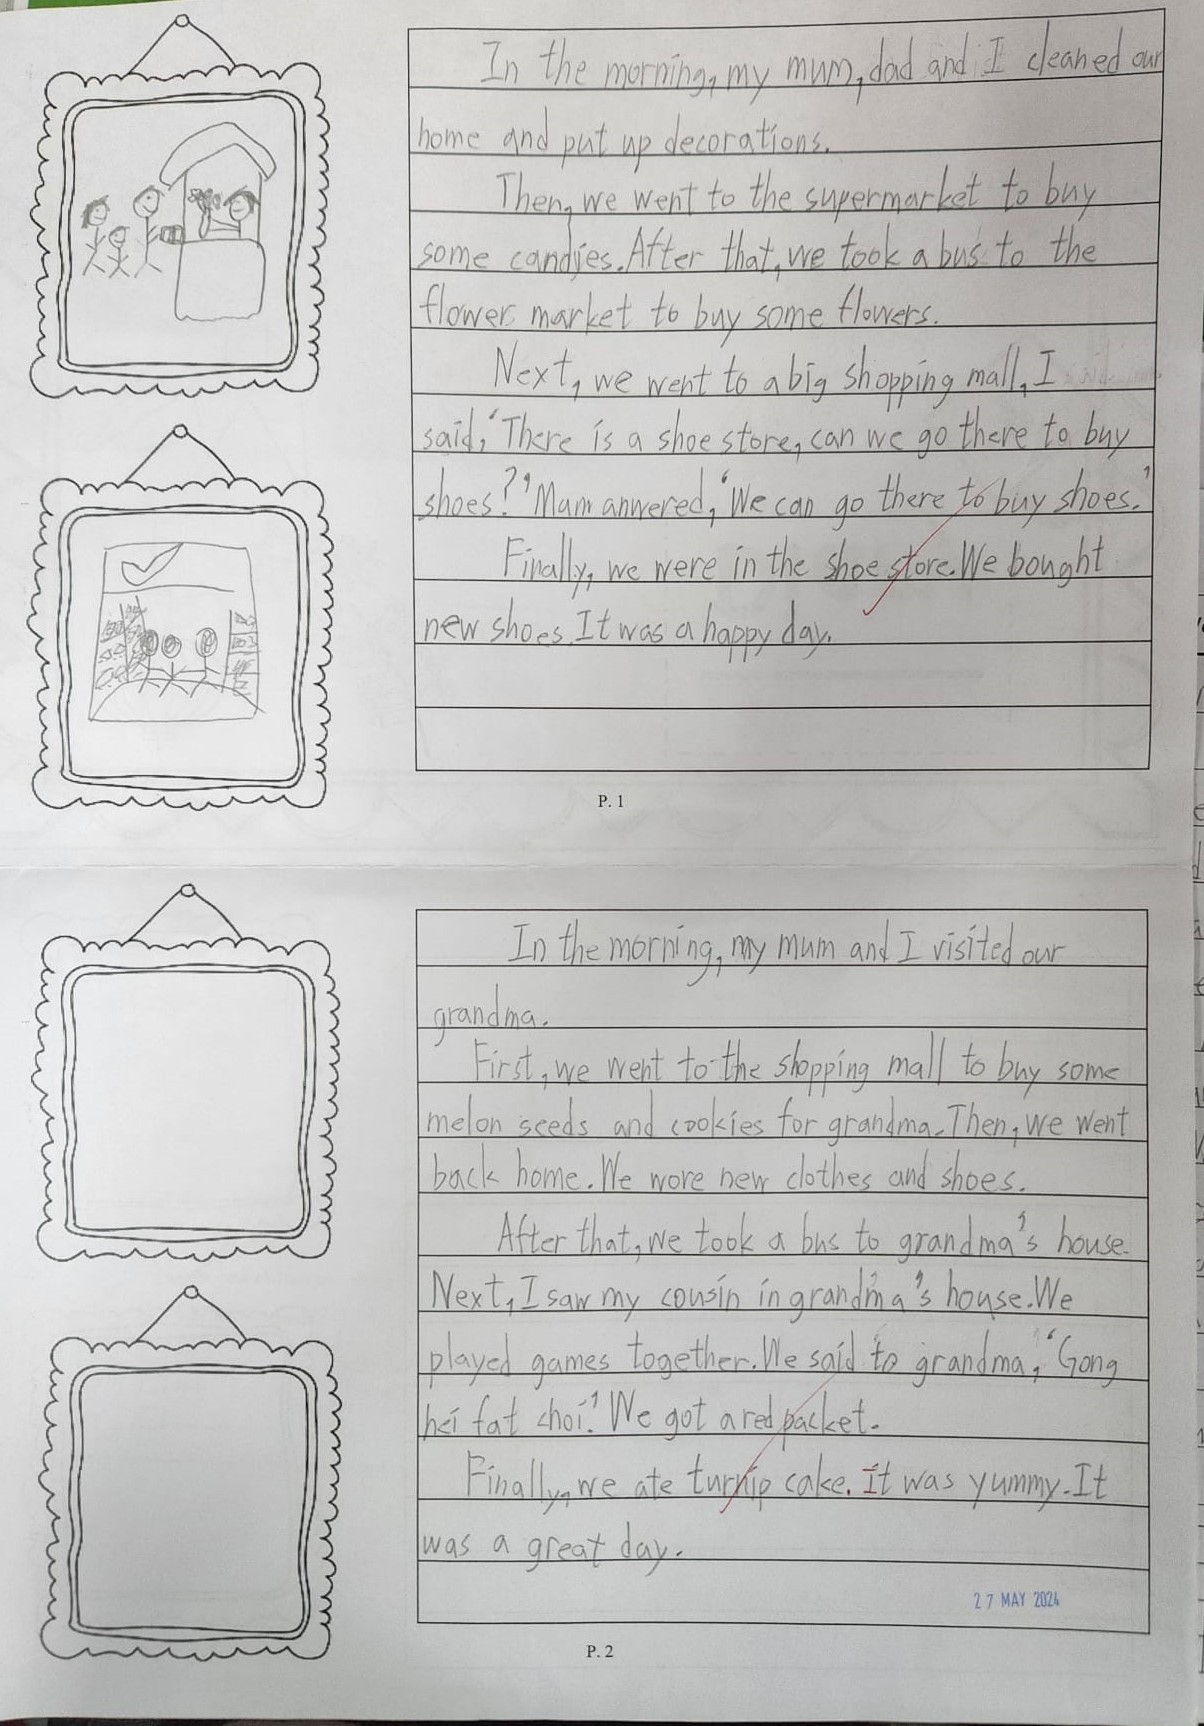 In the morning, my mum, dad and I cleaned our
home and put up decorations.
Then, we went to the supermarket to buy
some candies. After that, we took a bus to the
flower market to buy some flowers.
Next, we went to a big shopping mall, I
said, 'There is a shoe store, can we go there to buy
shoes?' Mum anwered, 'We can go there to buy shoes.'
Finally, we were in the shoe store. We bought
new shoes. It was a happy day.
P. 1
In the morning, my mum and I visited our
grandma.
First, we went to the shopping mall to buy some
melon seeds and cookies for grandma. Then, we went
back home. We wore new clothes and shoes.
After that, we took a bus to grandma's house.
Next, I saw my cousin in grandma's house. We
played games together. We said to grandma, 'Gong
hei fat choi.' We got a red packet.
Finally, we ate turnip cake. It was yummy. It
was a great day.
27 MAY 2024
P. 2